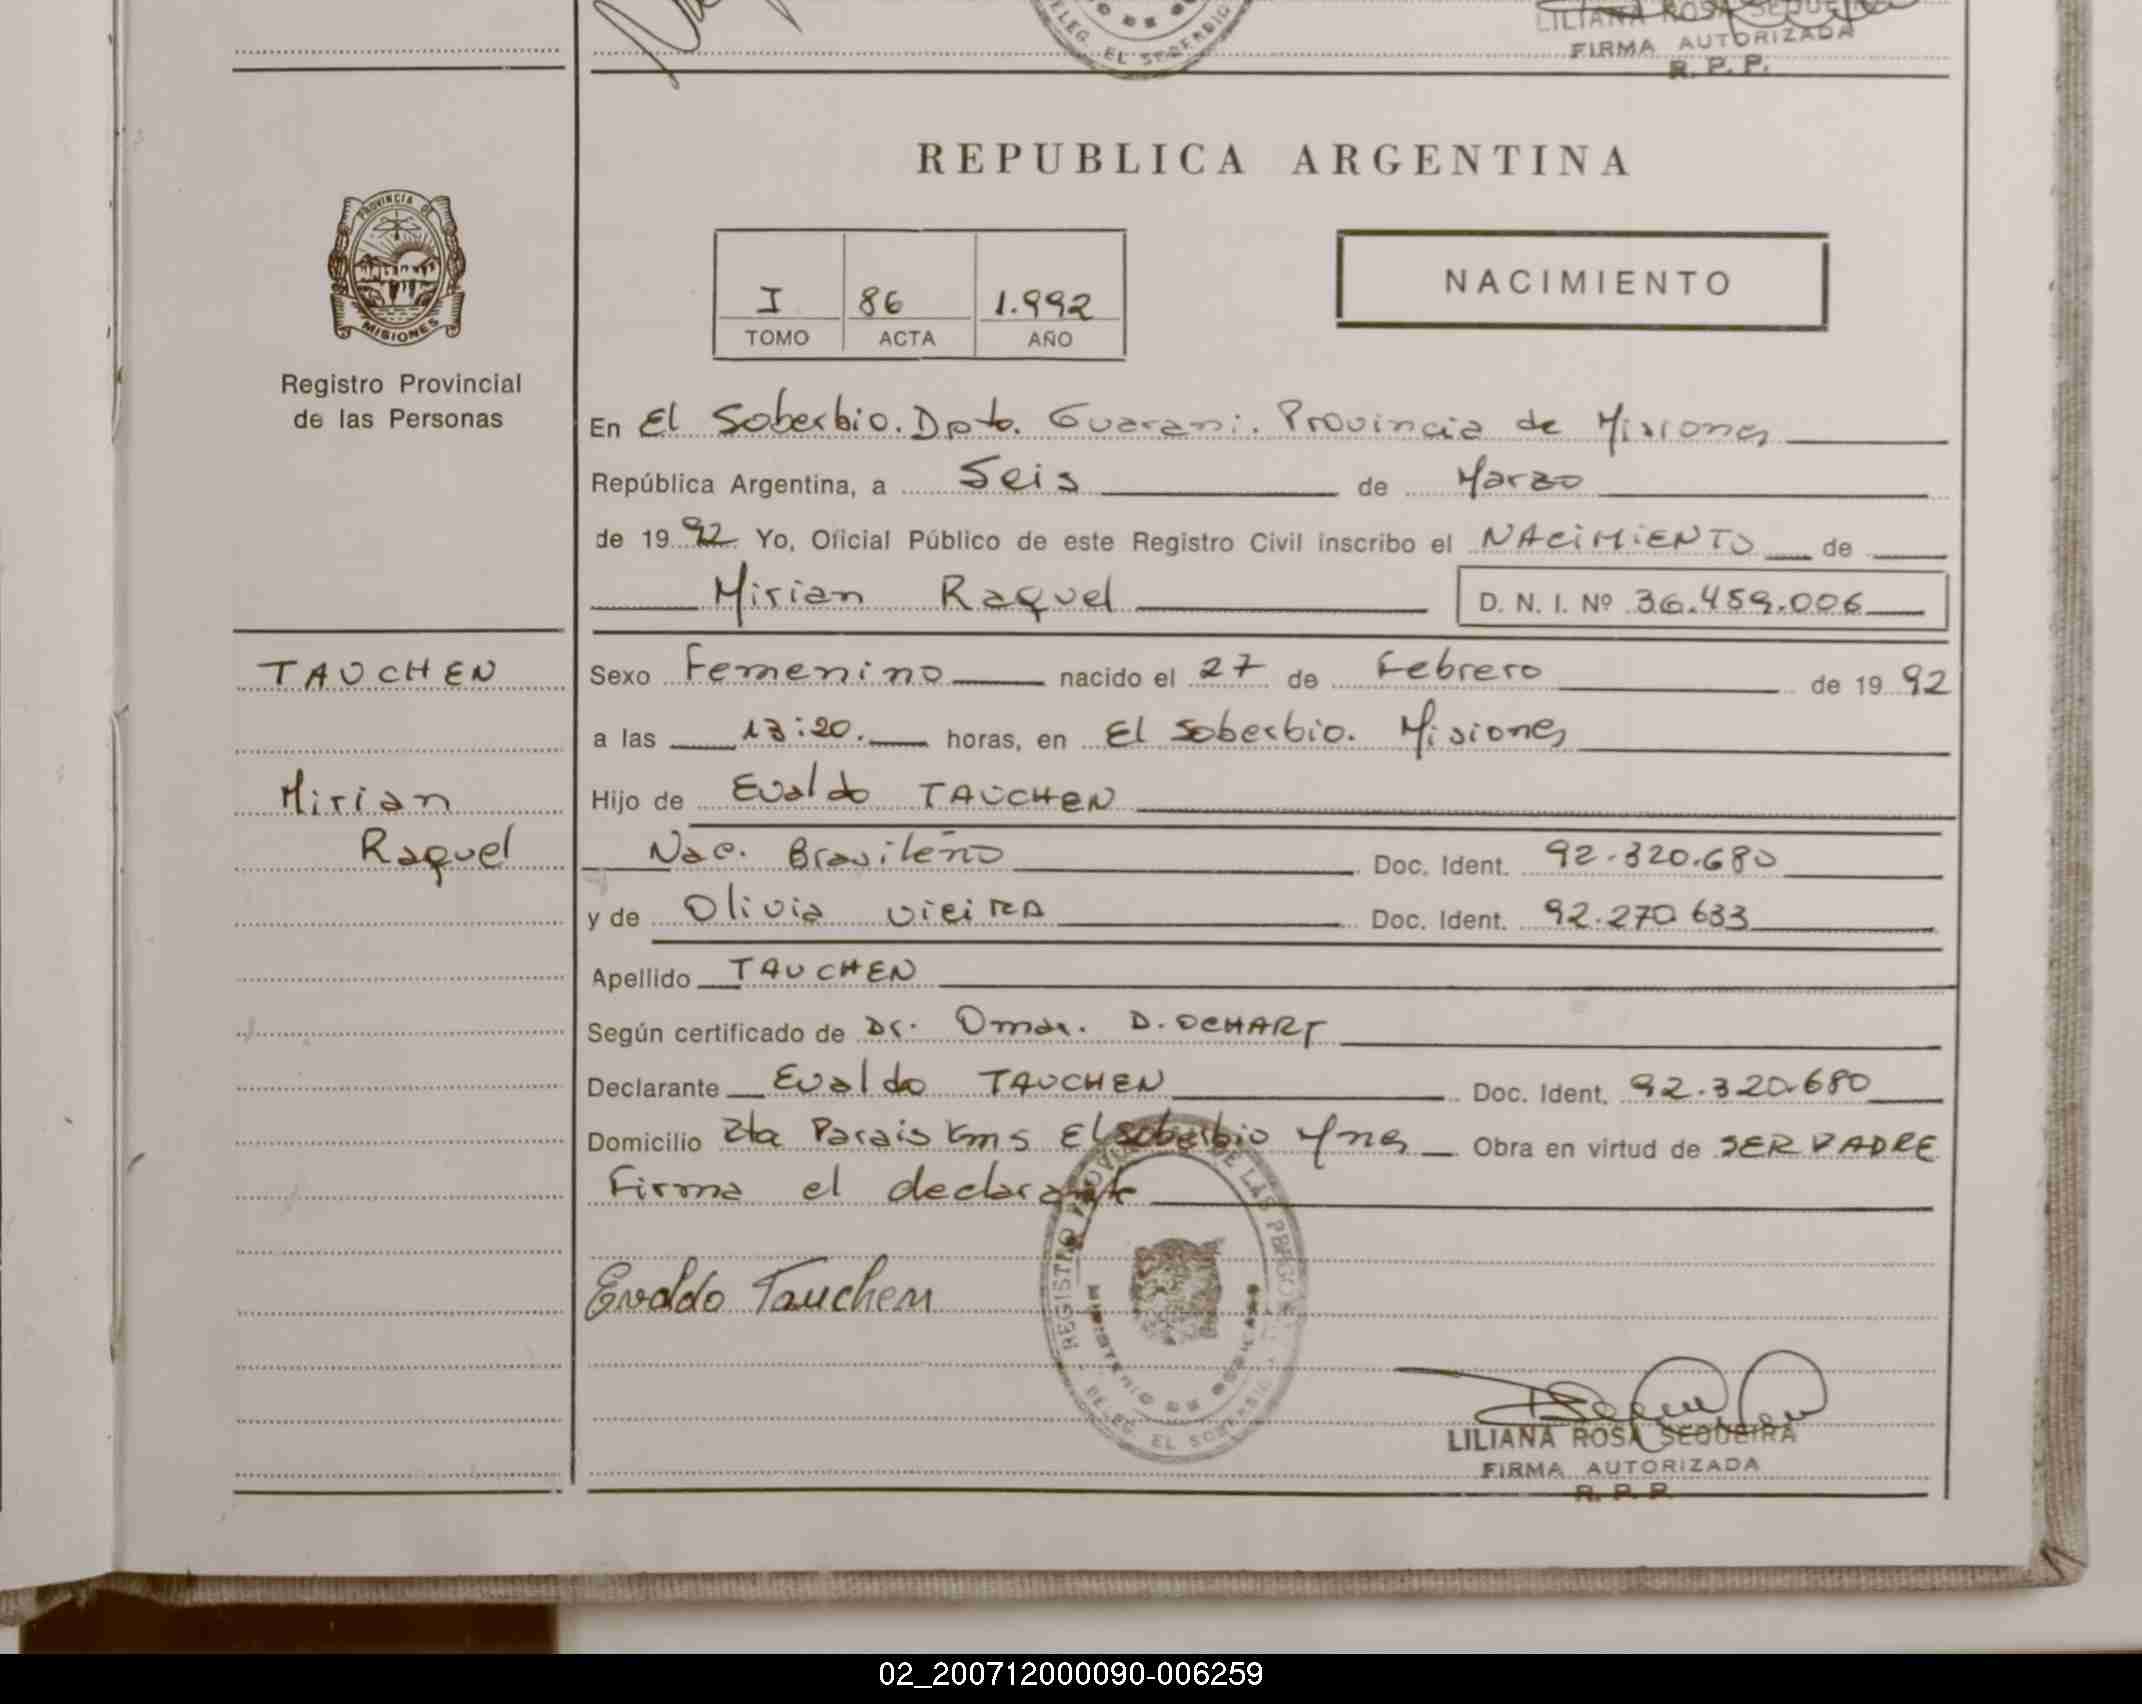 LILIANA ROSA SEQUEIRA
FIRMA AUTORIZADA
R. P. P.
DELEG. EL SOBERBIO
REPUBLICA ARGENTINA
PROVINCIA DE
MISIONES
Registro Provincial
de las Personas
I 86 1.992
TOMO ACTA AÑO
NACIMIENTO
En El Soberbio. Dpto. Guarani. Provincia de Misiones
República Argentina, a Seis de Marzo
de 1992 Yo, Oficial Público de este Registro Civil inscribo el NACIMIENTO de
Mirian Raquel D. N. I. Nº 36.459.006
TAUCHEN
Mirian
Raquel
Sexo Femenino nacido el 27 de Febrero de 1992
a las 13:20. horas, en El Soberbio. Misiones
Hijo de Evaldo TAUCHEN
Nac. Brasileño Doc. Ident. 92.320.680
y de Olivia VIEIRA Doc. Ident. 92.270 633
Apellido TAUCHEN
Según certificado de Dr. Omar. D. OCHART
Declarante Evaldo TAUCHEN Doc. Ident. 92.320.680
Domicilio Zta Parais Kms El Soberbio Mnes Obra en virtud de SER PADRE
Firma el declarante
Evaldo Tauchen
REGISTRO PROVINCIAL DE LAS PERSONAS
MINISTERIO DE GOBIERNO
DELEG. EL SOBERBIO
LILIANA ROSA SEQUEIRA
FIRMA AUTORIZADA
R. P. P.
02_200712000090-006259